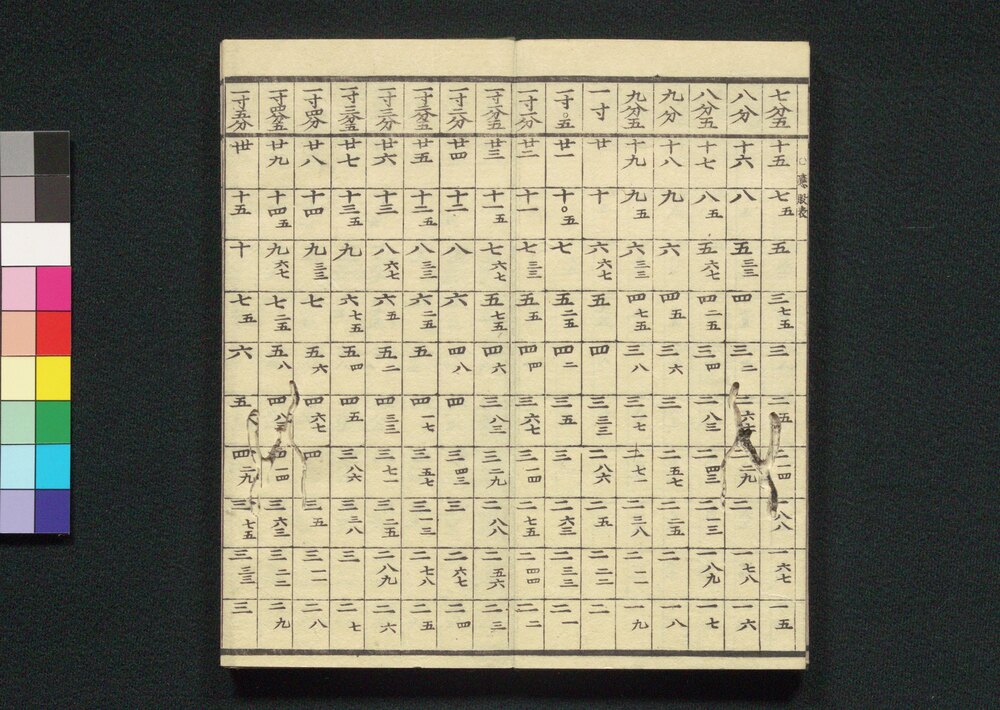 七分五 十五 七五 五 三七五 三 二五 二一四 一八八 一六七 一五
八分 十六 八 五三三 四 三二 二六七 二二九 二 一七八 一六
八分五 十七 八五 五六七 四二五 三四 二八三 二四三 二一三 一八九 一七
九分 十八 九 六 四五 三六 三 二五七 二二五 二 一八
九分五 十九 九五 六三三 四七五 三八 三一七 二七一 二三八 二一一 一九
一寸 廿 十 六六七 五 四 三三三 二八六 二五 二二二 二
一寸〇五 廿一 十〇五 七 五二五 四二 三五 三 二六三 二三三 二一
一寸一分 廿二 十一 七三三 五五 四四 三六七 三一四 二七五 二四四 二二
一寸一分五 廿三 十一五 七六七 五七五 四六 三八三 三二九 二八八 二五六 二三
一寸二分 廿四 十二 八 六 四八 四 三四三 三 二六七 二四
一寸二分五 廿五 十二五 八三三 六二五 五 四一七 三五七 三一三 二七八 二五
一寸三分 廿六 十三 八六七 六五 五二 四三三 三七一 三二五 二八九 二六
一寸三分五 廿七 十三五 九 六七五 五四 四五 三八六 三三八 三 二七
一寸四分 廿八 十四 九三三 七 五六 四六七 四 三五 三一一 二八
一寸四分五 廿九 十四五 九六七 七二五 五八 四八三 四一四 三六三 三二二 二九
一寸五分 卅 十五 十 七五 六 五 四二九 三七五 三三三 三